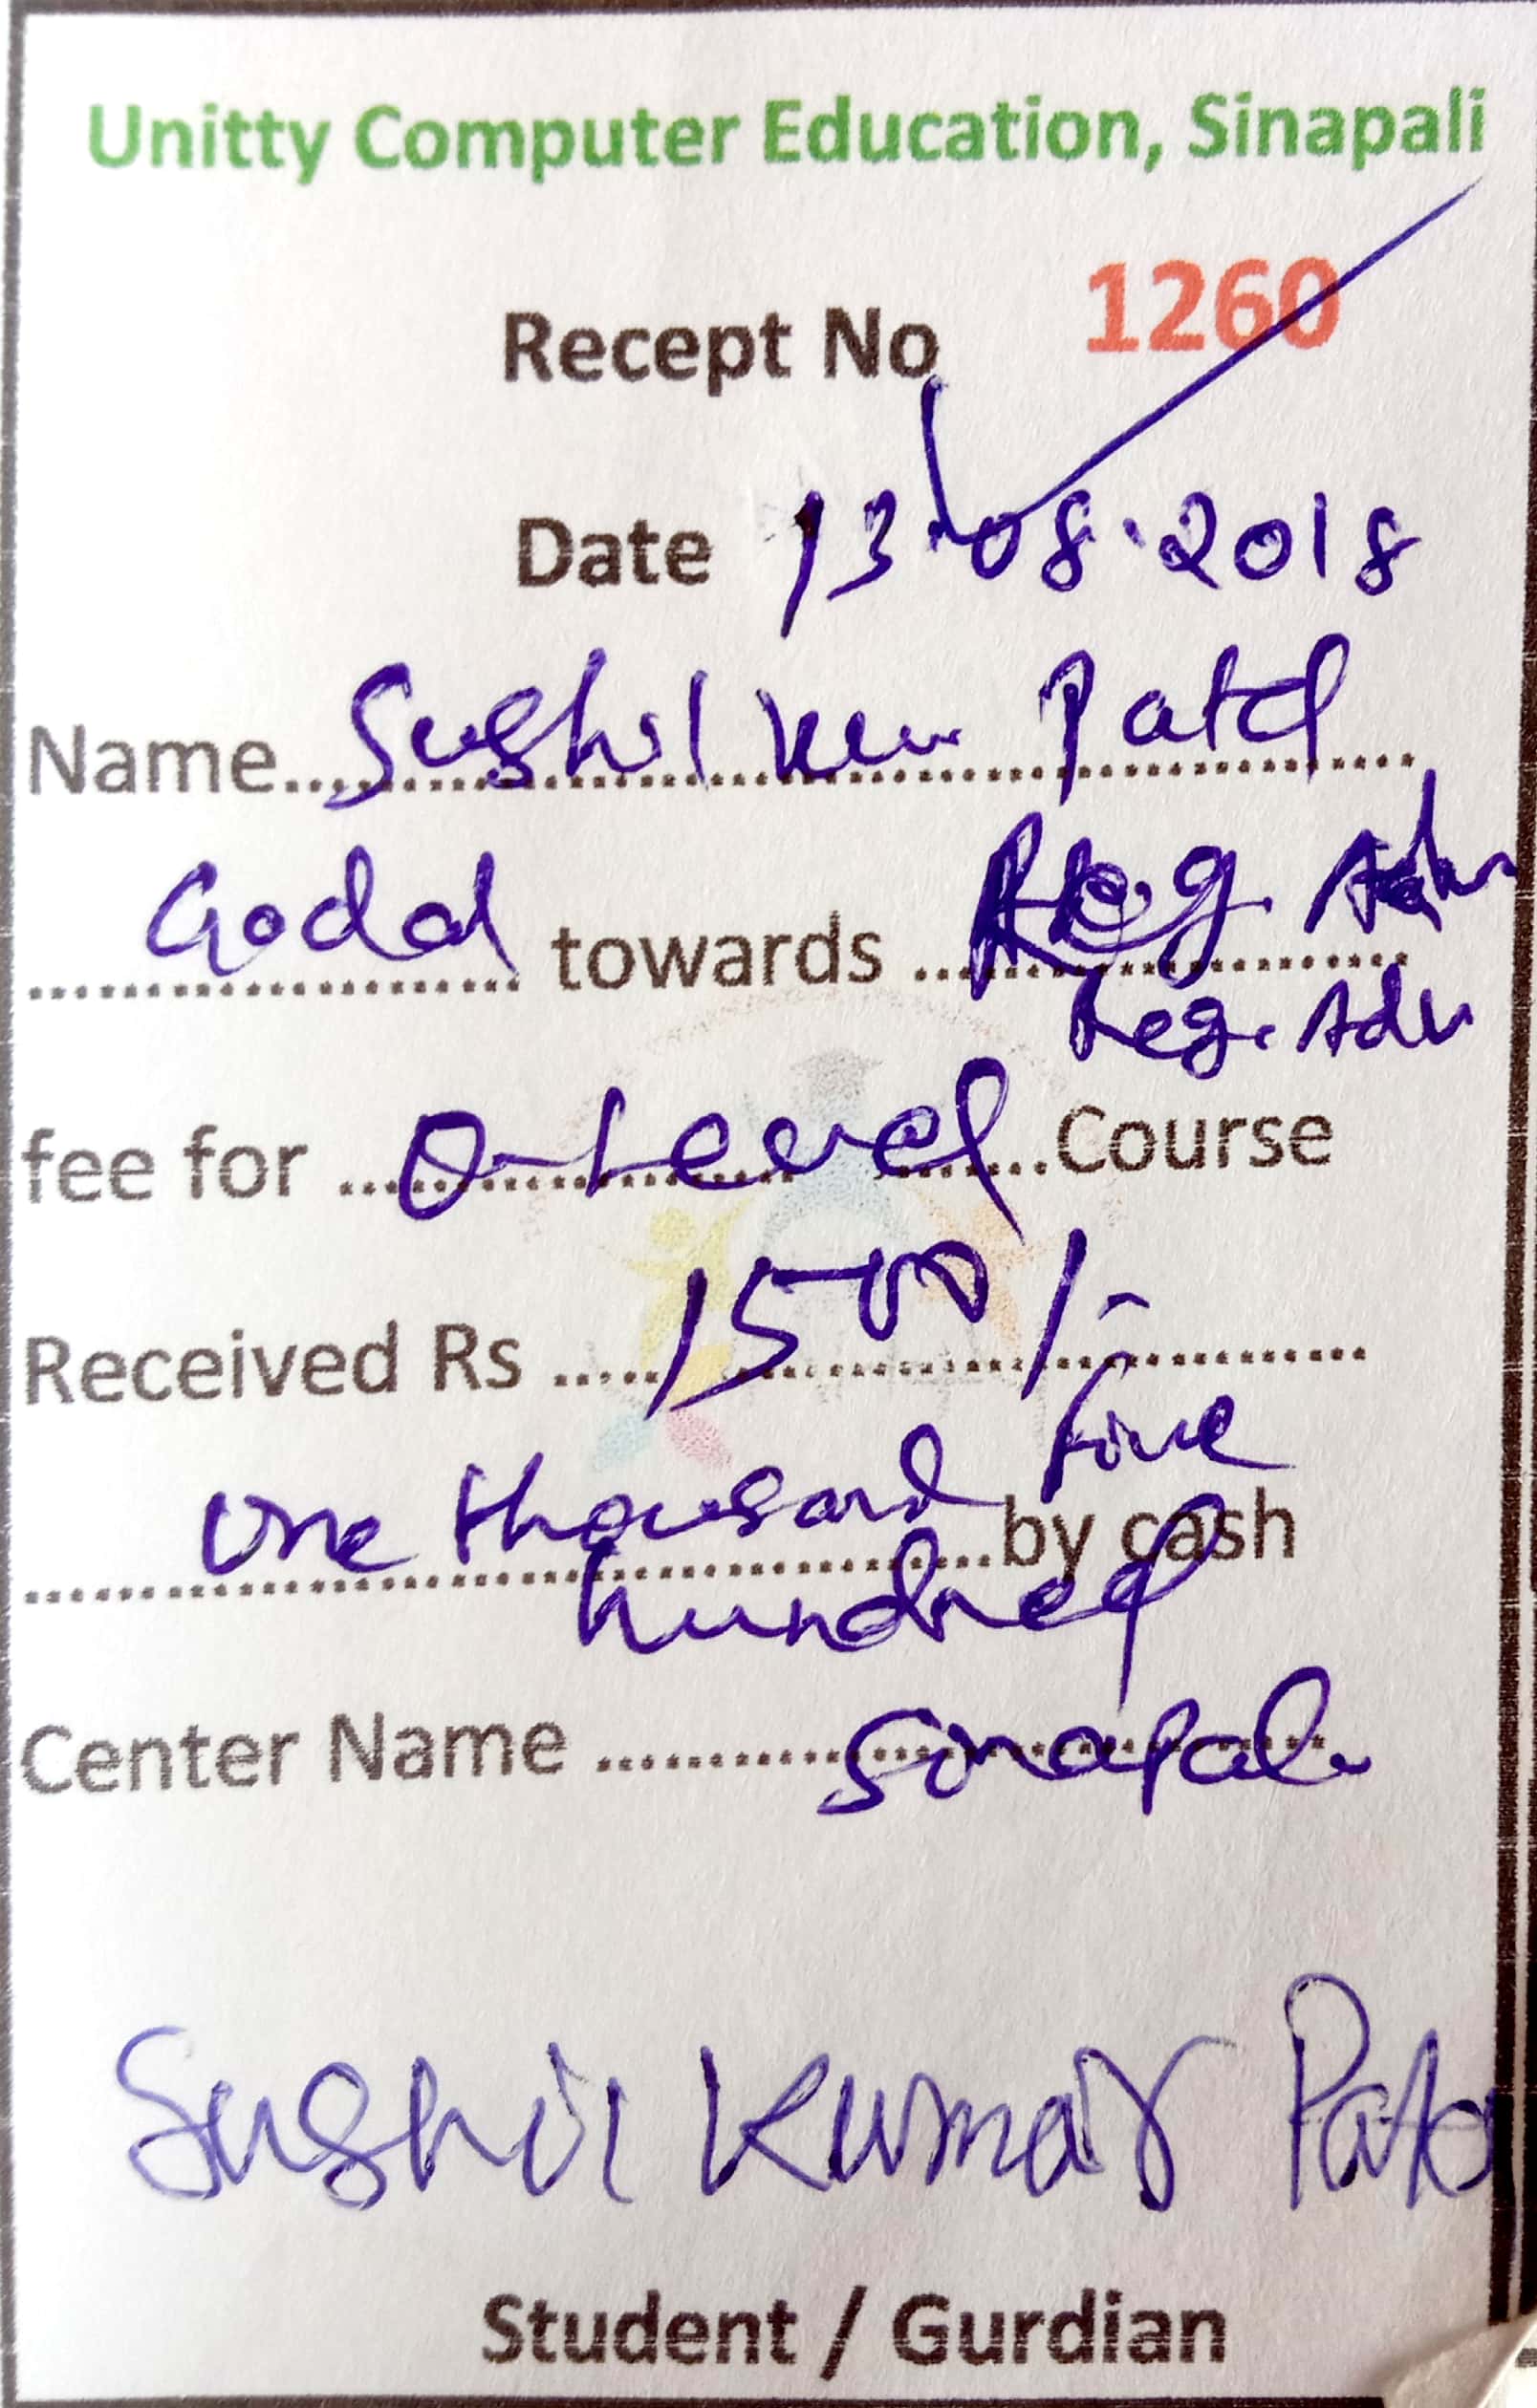 Unitty Computer Education, Sinapali
Recept No 1260
Date 13.08.2018
Name Sushil Kum Patel
Godal towards Reg. Adm
Reg. Adm
fee for O-Level Course
Received Rs 1500/-
One thousand five
by cash
hundred
Center Name Sinapali
Sushil Kumar Patel
Student / Gurdian